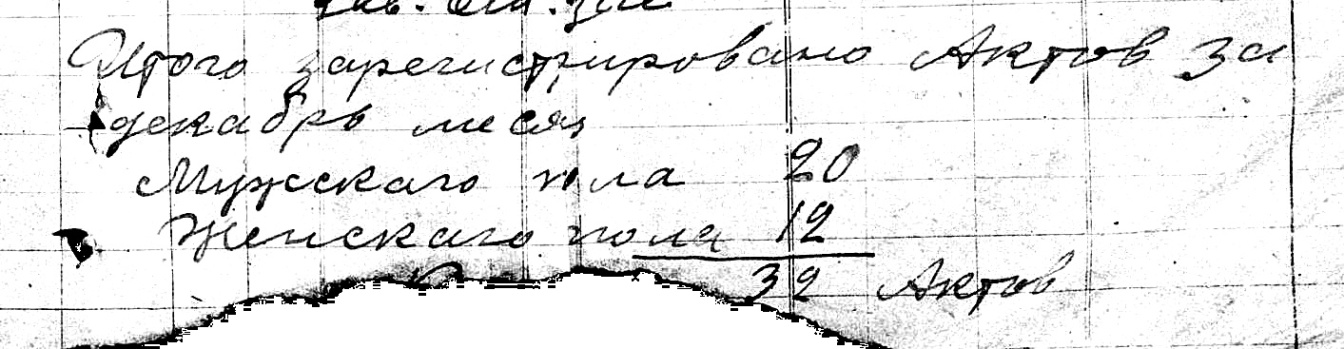 Итого зарегистрировано Актов за
декабрь месяц
Мужскаго пола 20
Женскаго пола 12
32 Актов